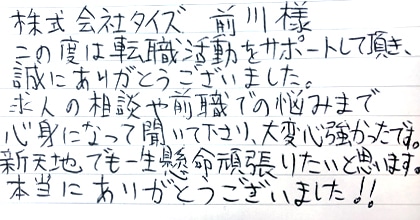 株式会社タイズ 前川様
この度は転職活動をサポートして頂き、
誠にありがとうございました。
求人の相談や前職での悩みまで
心身になって聞いて下さり、大変心強かったです。
新天地でも一生懸命頑張りたいと思います。
本当にありがとうございました!!